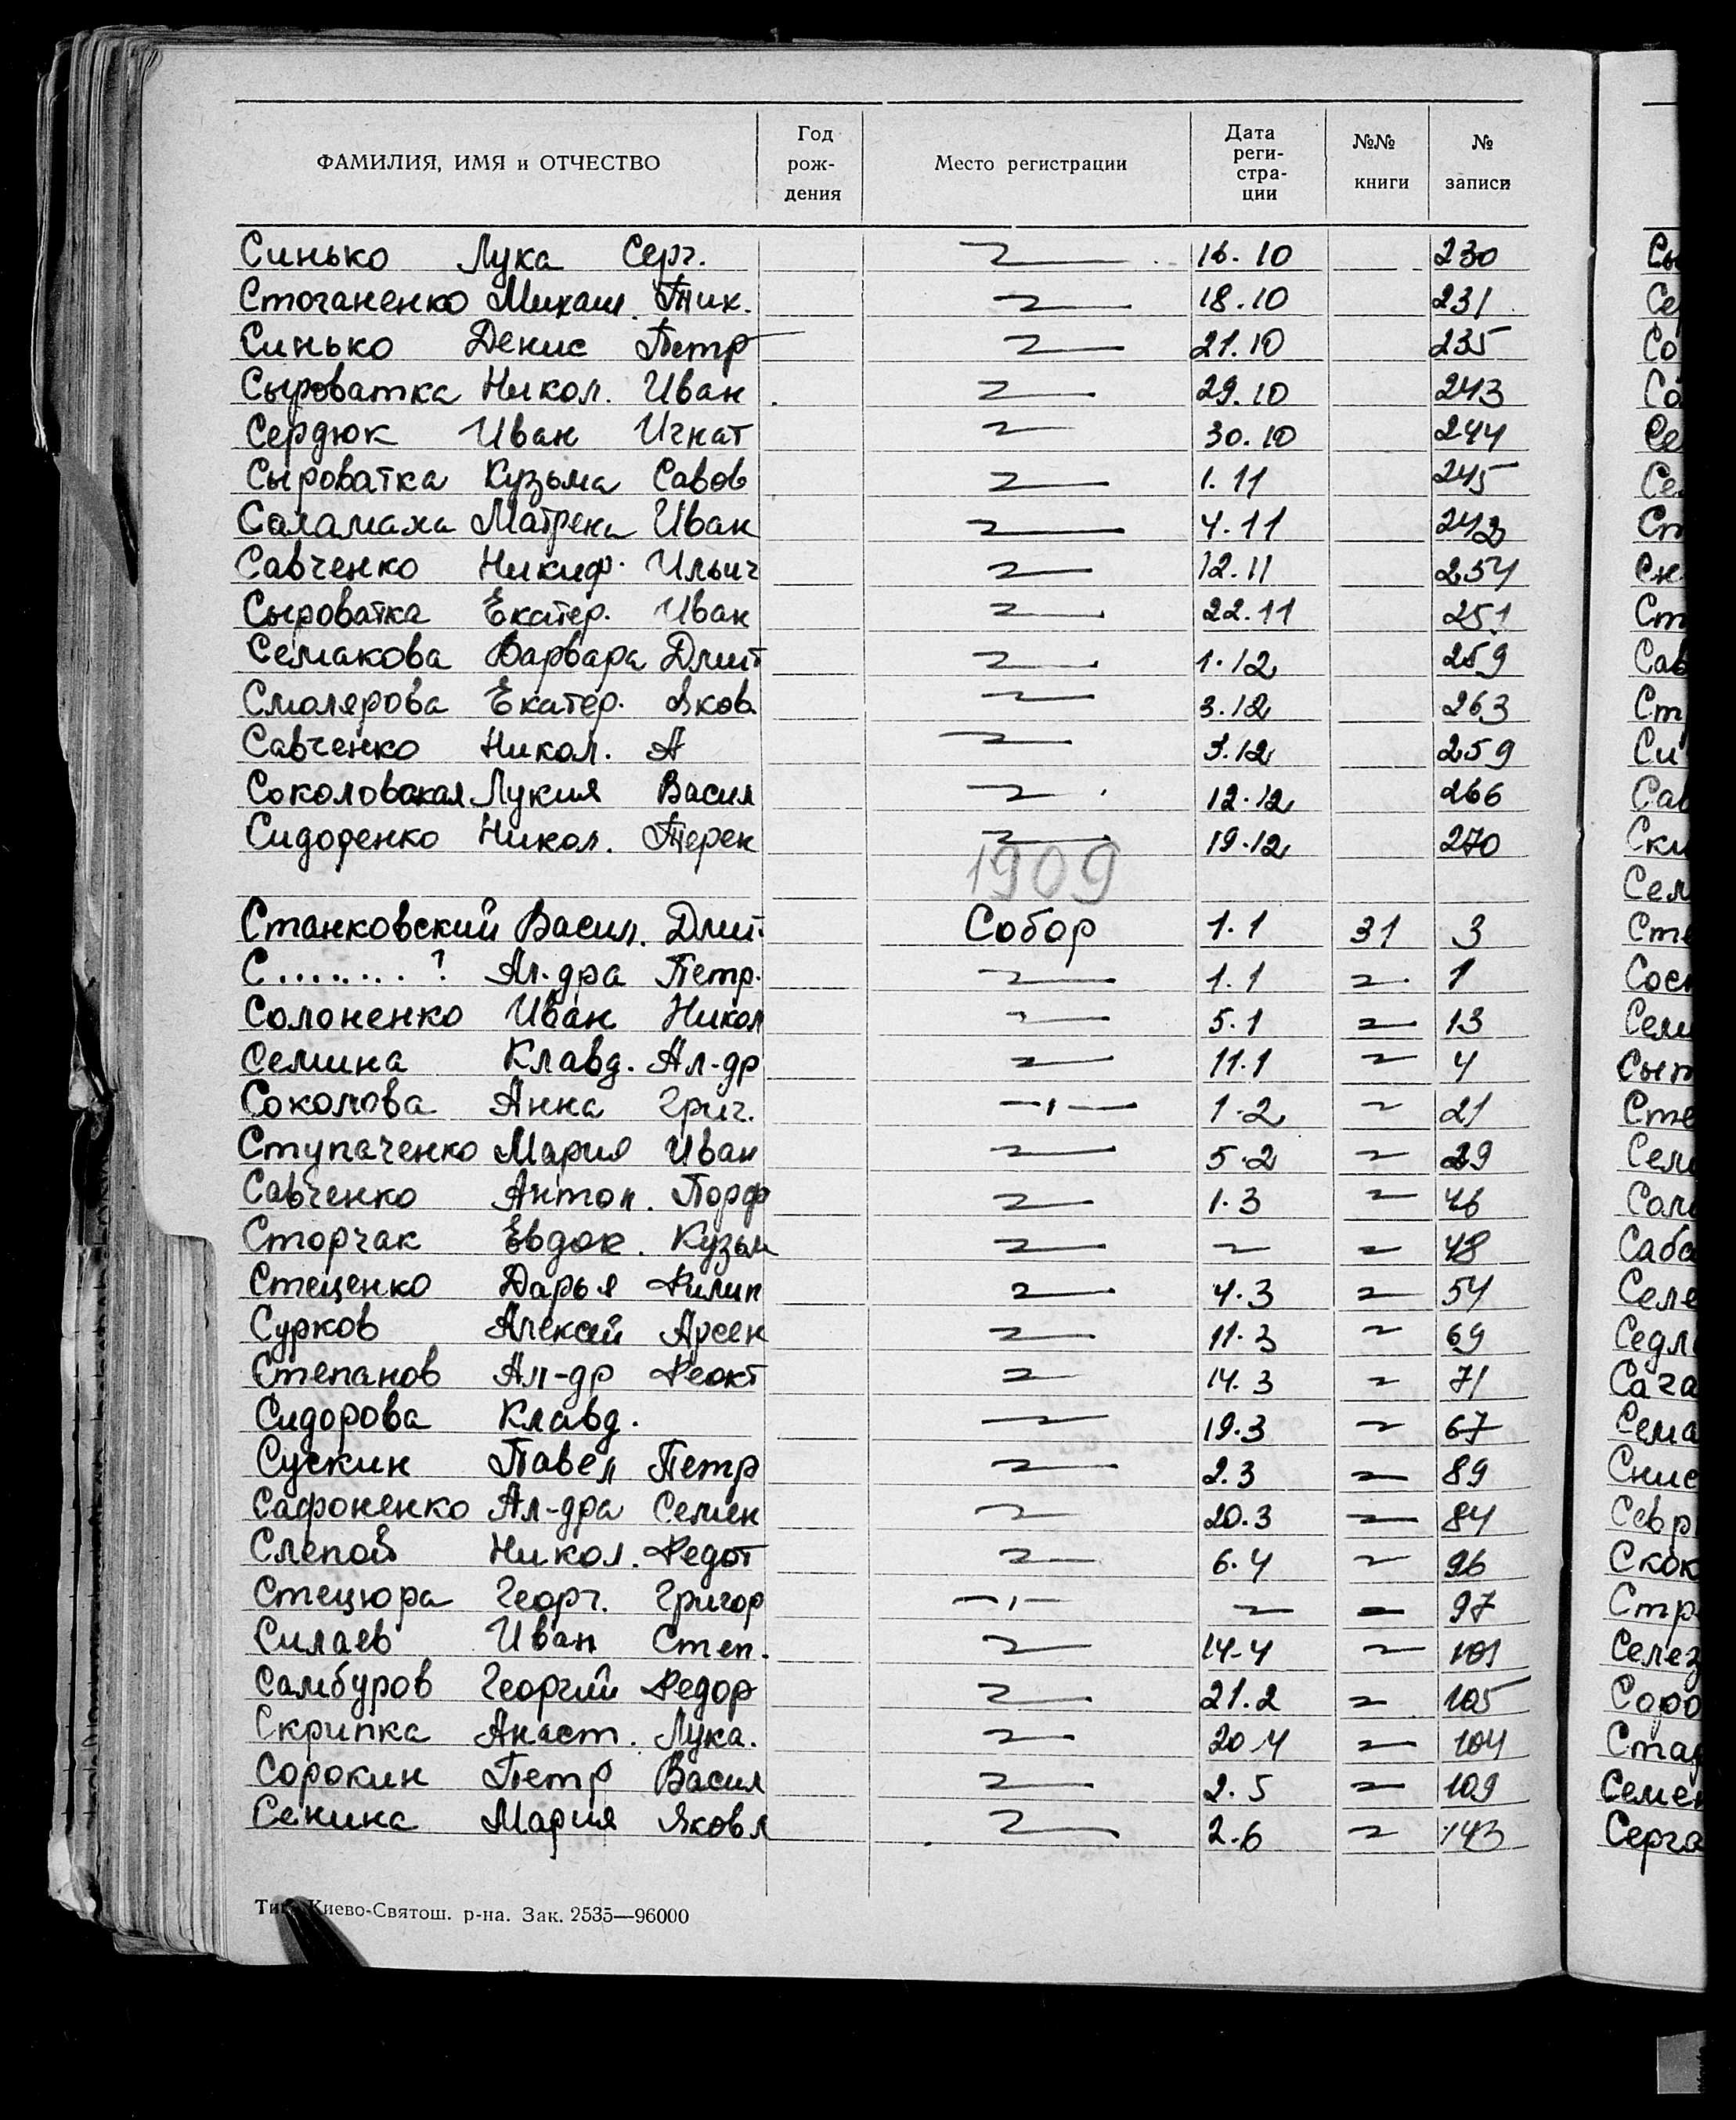 ФАМИЛИЯ, ИМЯ и ОТЧЕСТВО Год рож-дения Место регистрации Дата реги-стра-ции №№ книги № записи
Синько Лука Серг. 16.10 230
Стоганенко Михаил. Тих. 18.10 231
Синько Денис Петр 21.10 235
Сыроватка Никол. Иван 29.10 243
Сердюк Иван Игнат 30.10 244
Сыроватка Кузьма Савов 1.11 245
Саламаха Матрена Иван 4.11
Савченко Никиф. Ильич 12.11 254
Сыроватка Екатер. Иван 22.11 251
Семакова Варвара Дмит 1.12 259
Смолярова Екатер. Яков. 3.12 263
Савченко Никол. А 3.12 259
Лукия Васил 12.12 266
Сидоренко Никол. Терен 19.12 270
1909
Станковский Васил. Дмит. Собор 1.1 31 3
С........? Ал-дра Петр. 1.1 1
Солоненко Иван Никол 5.1 13
Семина Клавд. Ал-др 11.1 4
Соколова Анна Григ. —"— 1.2 21
Ступаченко Мария Иван 5.2 29
Савченко Антон. Порф 1.3 46
Сторчак Евдок. Кузьм 48
Стеценко Дарья Филип 4.3 54
Сурков Алексей Арсен 11.3 69
Степанов Ал-др Феокт 14.3 71
Сидорова Клавд. 19.3 67
Сускин Павел Петр 2.3 89
Сафоненко Ал-дра Семен 20.3 84
Слепой Никол. Федот 6.4 96
Стецюра Георг. Григор —"— 97
Силаев Иван Степ. 14.4 101
Самбуров Георгий Федор 21.2 105
Скрипка Анаст. Лука. 20.4 104
Сорокин Петр Васил 2.5 109
Сенина Мария Яковл 2.6 143
Киево-Святош. р-на. Зак. 2535—96000